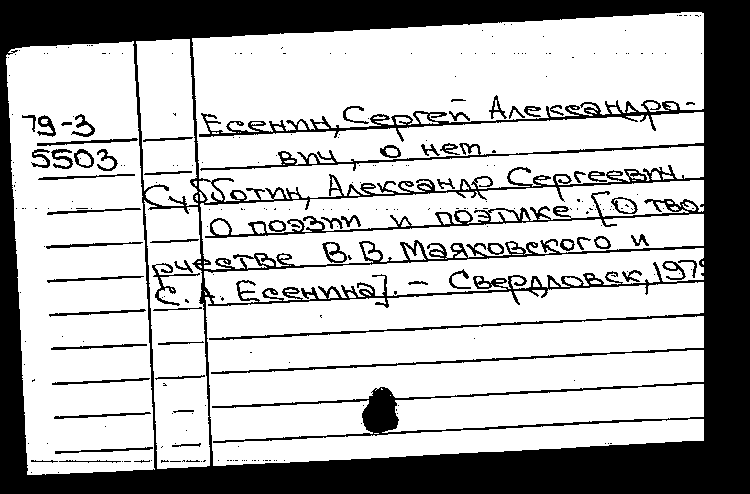 79-3
5503
Есенин, Сергей Александро-
вич, о нем.
Субботин, Александр Сергеевич.
О поэзии и поэтике: [О тво-
рчестве В.В. Маяковского и
С.А. Есенина]. – Свердловск, 1979